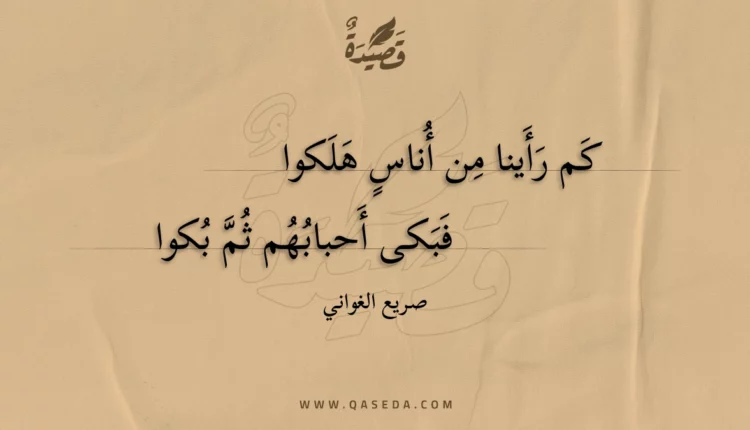 قَصِيْدَةٌ
كَم رَأَينا مِن أُناسٍ هَلَكوا
فَبَكى أَحبابُهُم ثُمَّ بُكوا
صريع الغواني
WWW.QASEDA.COM